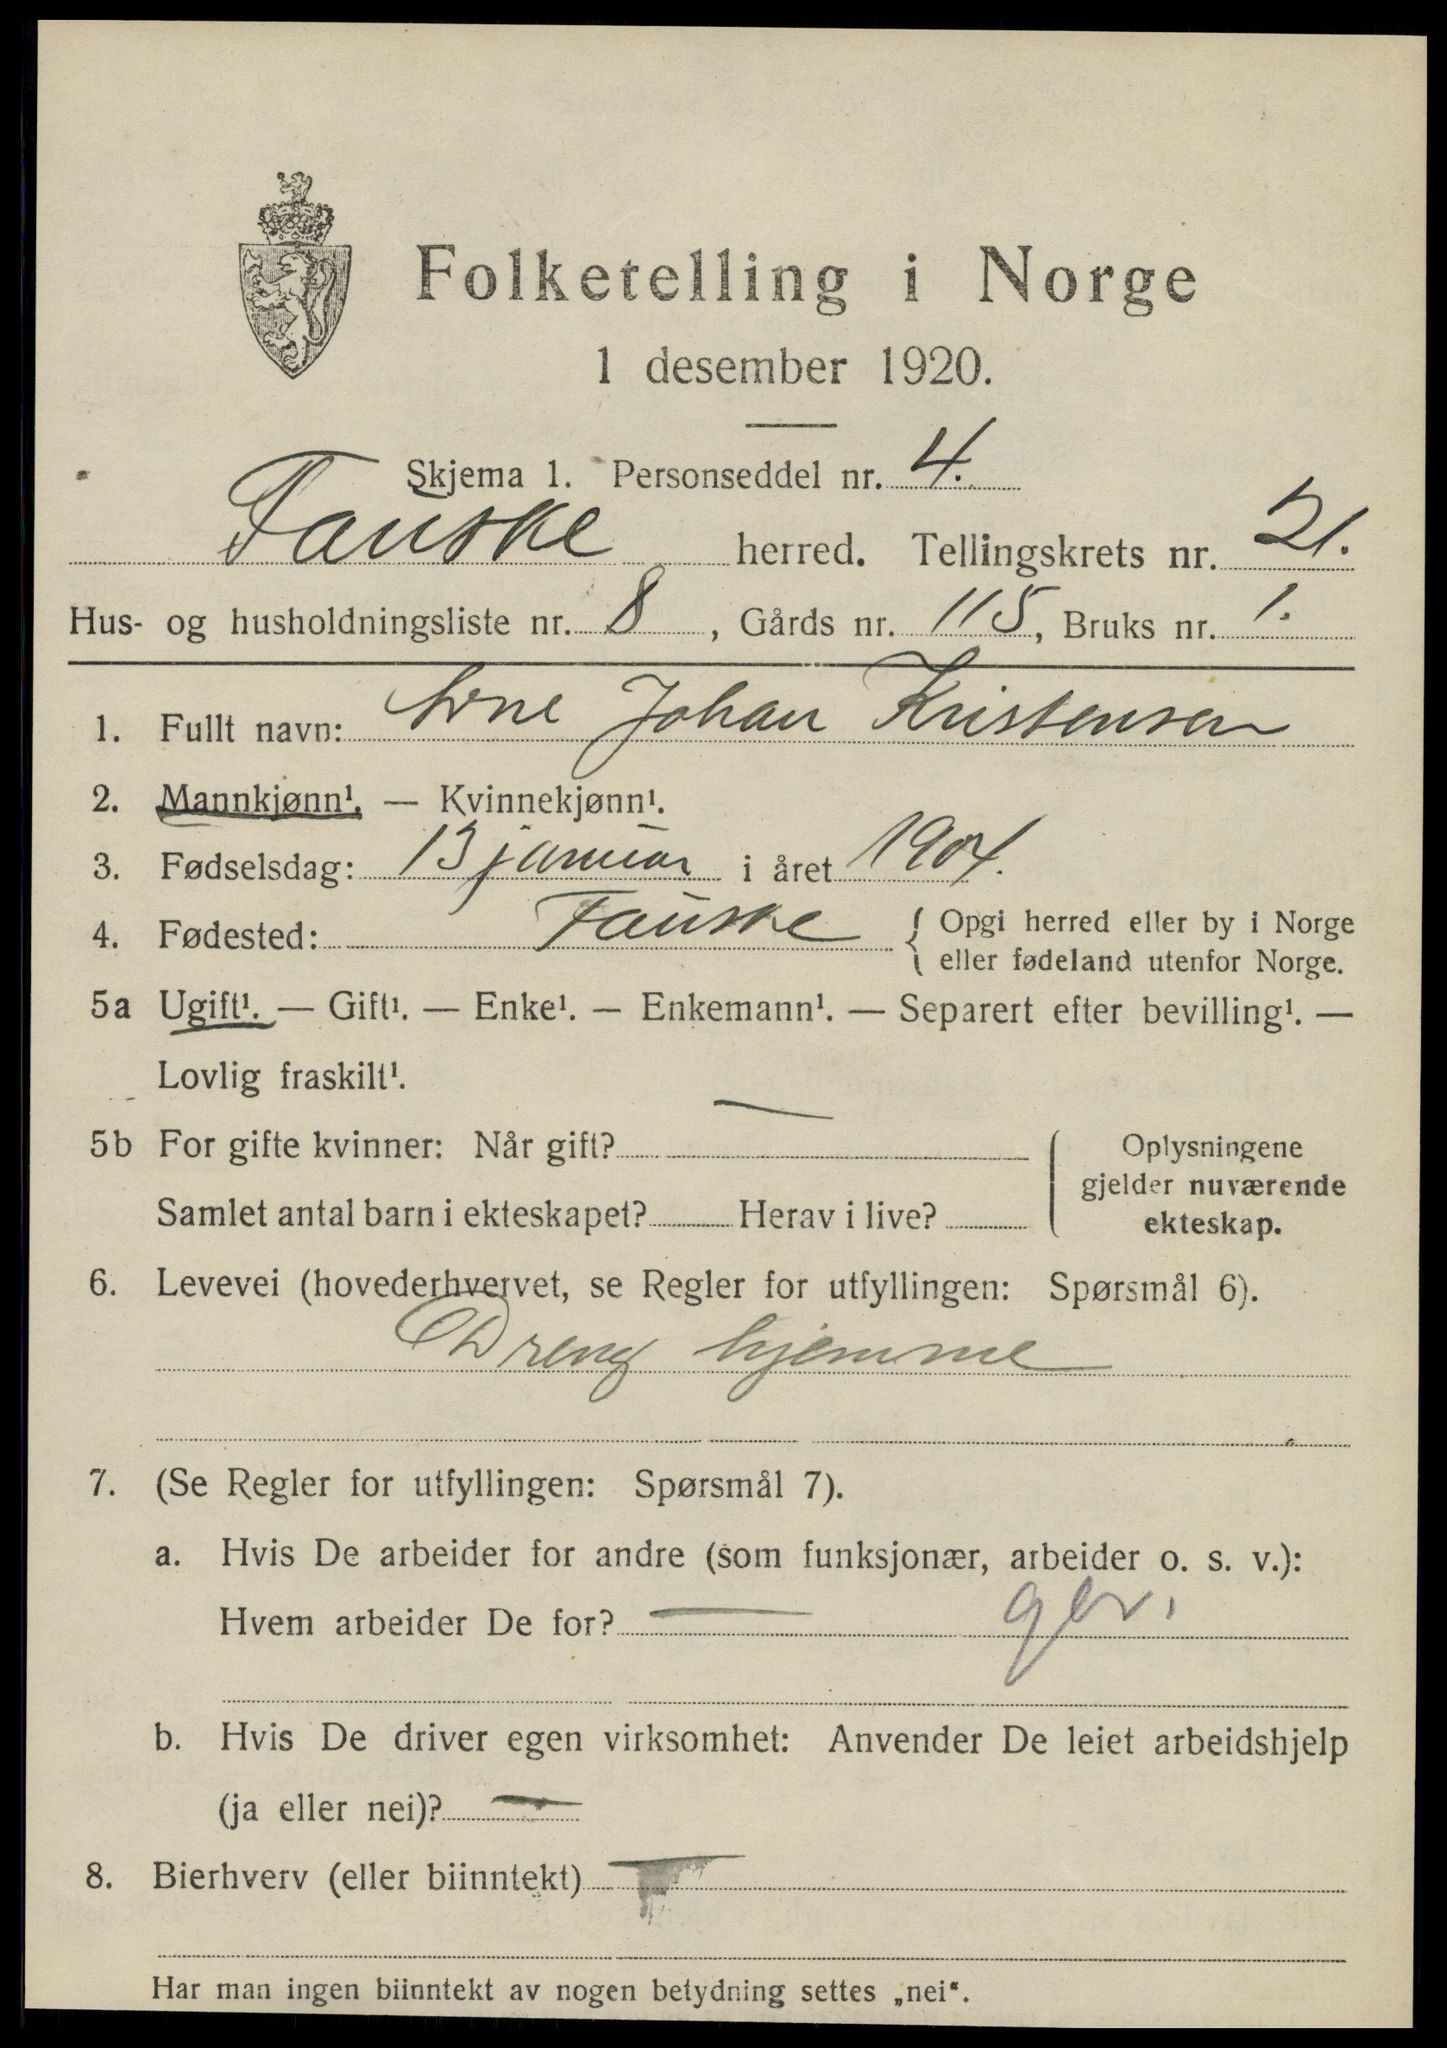 Folketelling i Norge
1 desember 1920.
Skjema 1. Personseddel nr. 4.
Fauske herred. Tellingskrets nr. 21.
Hus- og husholdningsliste nr. 8, Gårds nr. 115, Bruks nr. 1.
1. Fullt navn: Arne Johan Kristensen
2. Mannkjønn¹. — Kvinnekjønn¹.
3. Fødselsdag: 13 januar i året 1904.
4. Fødested: Fauske { Opgi herred eller by i Norge
eller fødeland utenfor Norge.
5a Ugift¹. — Gift¹. — Enke¹. — Enkemann¹. — Separert efter bevilling¹. —
Lovlig fraskilt¹.
5b For gifte kvinner: Når gift? — { Oplysningene
gjelder nuværende
Samlet antal barn i ekteskapet? Herav i live?
ekteskap.
6. Levevei (hovederhvervet, se Regler for utfyllingen: Spørsmål 6).
Dreng hjemme
7. (Se Regler for utfyllingen: Spørsmål 7).
a. Hvis De arbeider for andre (som funksjonær, arbeider o. s. v.):
Hvem arbeider De for? —
b. Hvis De driver egen virksomhet: Anvender De leiet arbeidshjelp
(ja eller nei)? —
8. Bierhverv (eller biinntekt) —
Har man ingen biinntekt av nogen betydning settes „nei“.